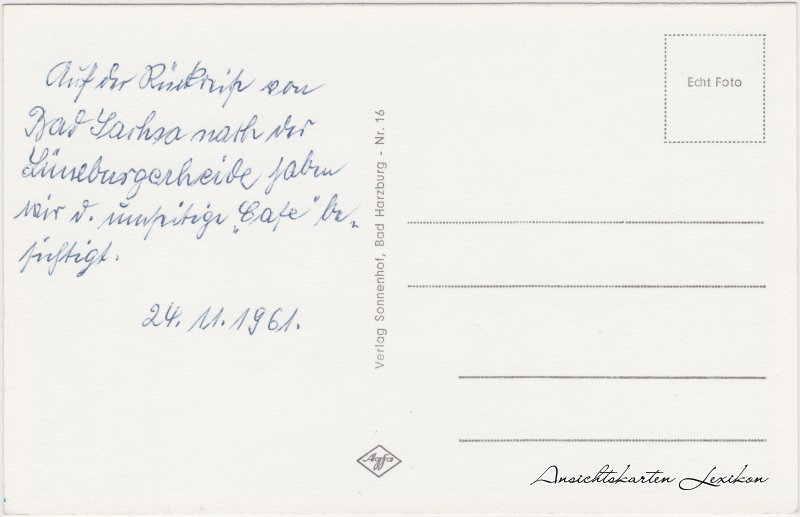 Auf der Rückreise von
Bad Sachsa nach der
Lüneburgerheide haben
wir d. umseitige „Cafe" be-
sichtigt.
24.11.1961.
Verlag Sonnenhof, Bad Harzburg - Nr. 16
Echt Foto
Agfa
Ansichtskarten Lexikon